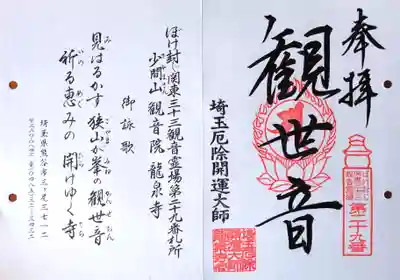 奉拝
観世音
埼玉厄除開運大師
第二十九番
ぼけ封じ関東三十三観音霊場第二十九番札所
少間山観音院龍泉寺
御詠歌
見はるかす狭山が峯の観世音
祈る恵みの開けゆく寺
埼玉県熊谷市三ヶ尻三七一二